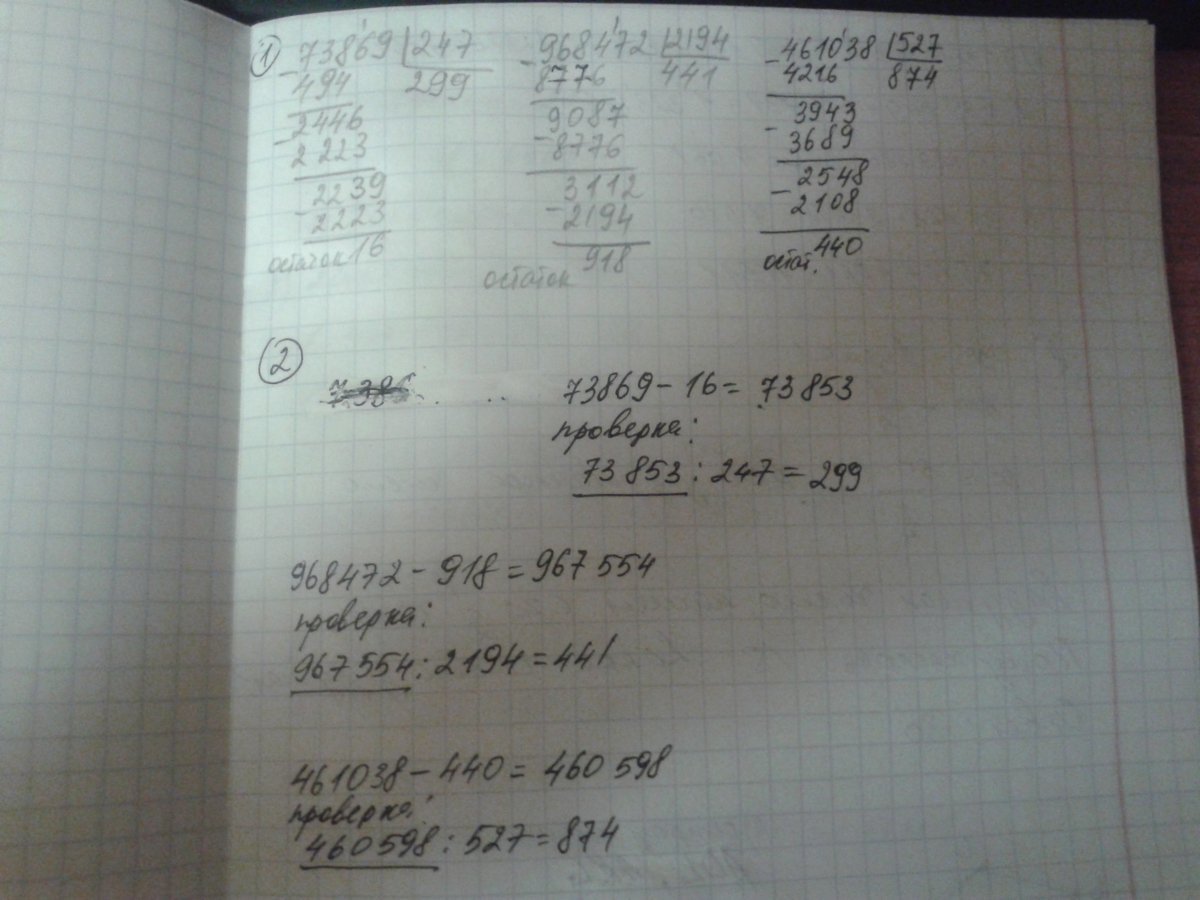 1
73869 247
- 494 299
2446
- 2223
2239
- 2223
остаток 16
968472 2194
- 8776 441
9087
- 8776
3112
- 2194
918
остаток
461038 527
- 4216 874
3943
- 3689
2548
- 2108
остат. 440
2
73869 - 16 = 73853
проверка:
73853 : 247 = 299
968472 - 918 = 967554
проверка:
967554 : 2194 = 441
461038 - 440 = 460598
проверка:
460598 : 527 = 874